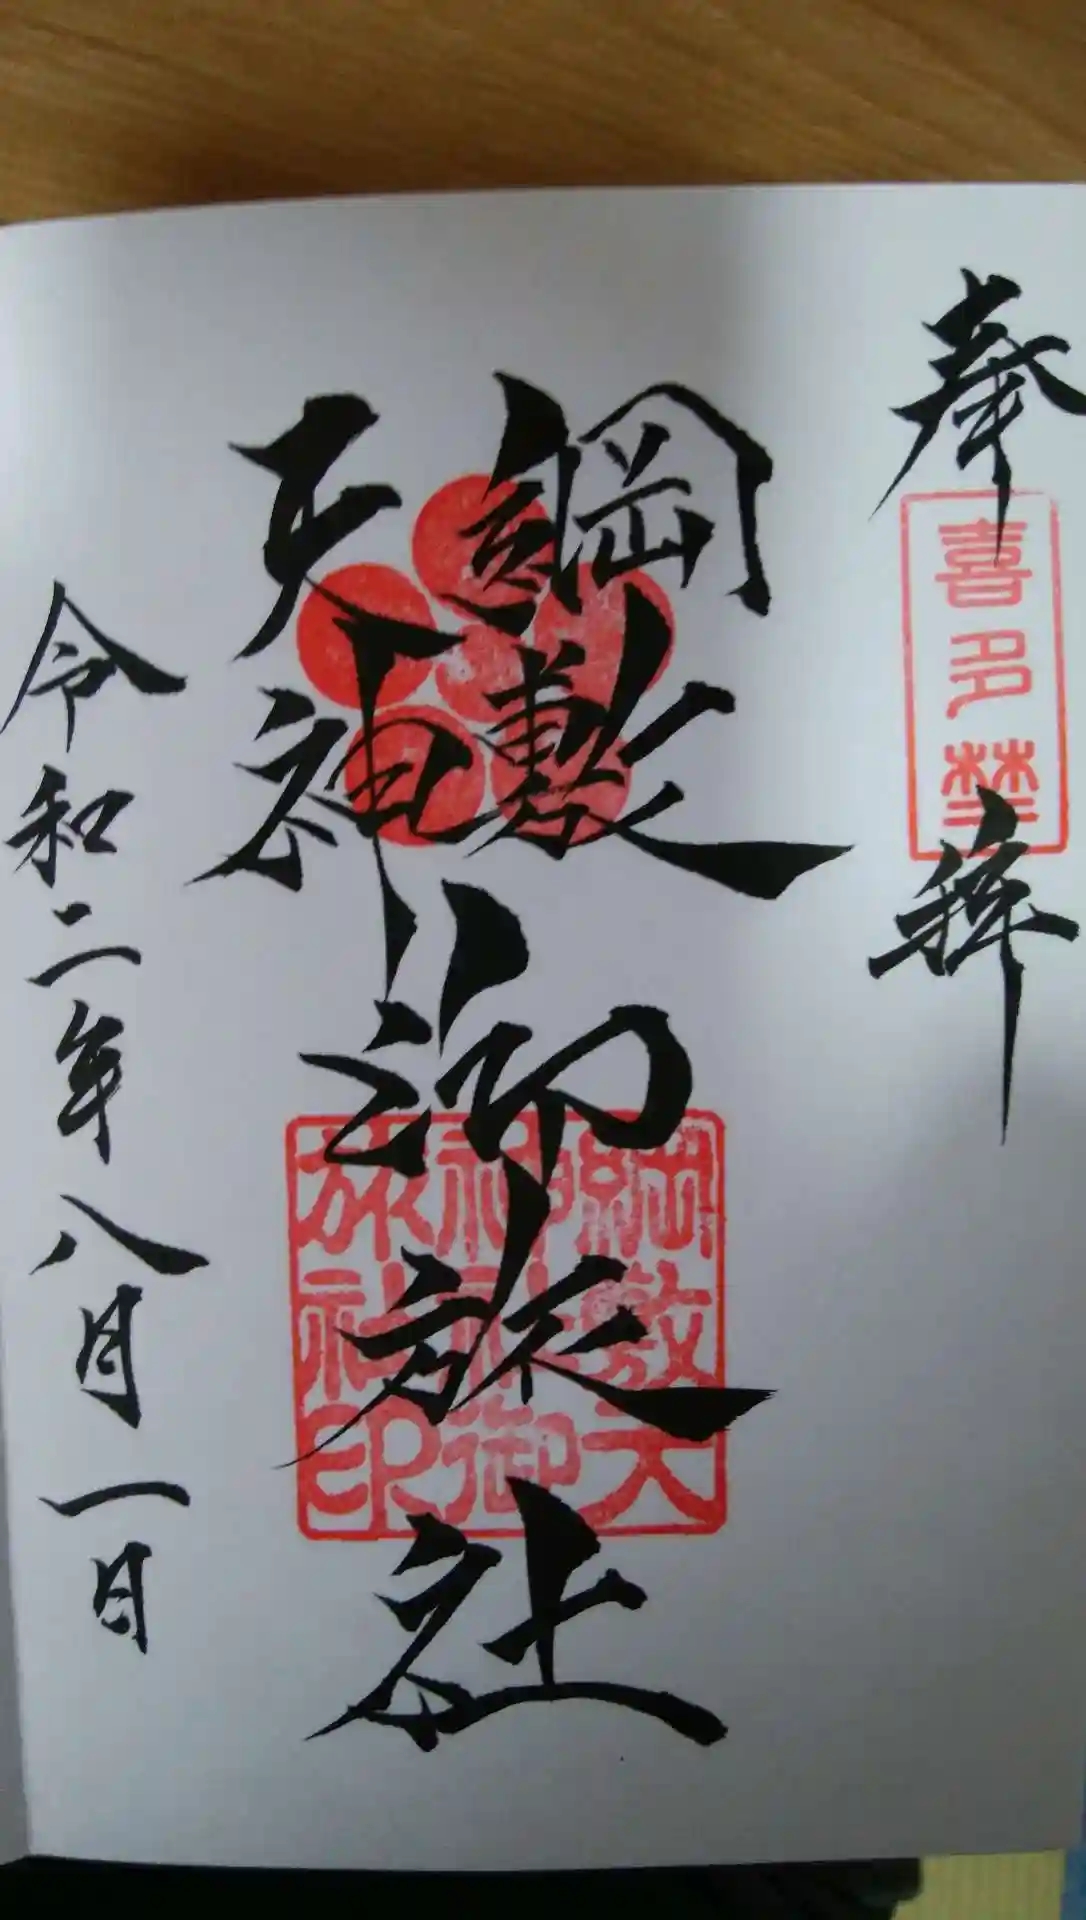 奉拝
喜多埜
綱敷
天神
御旅社
綱敷天
神社御
旅社印
令和二年八月一日